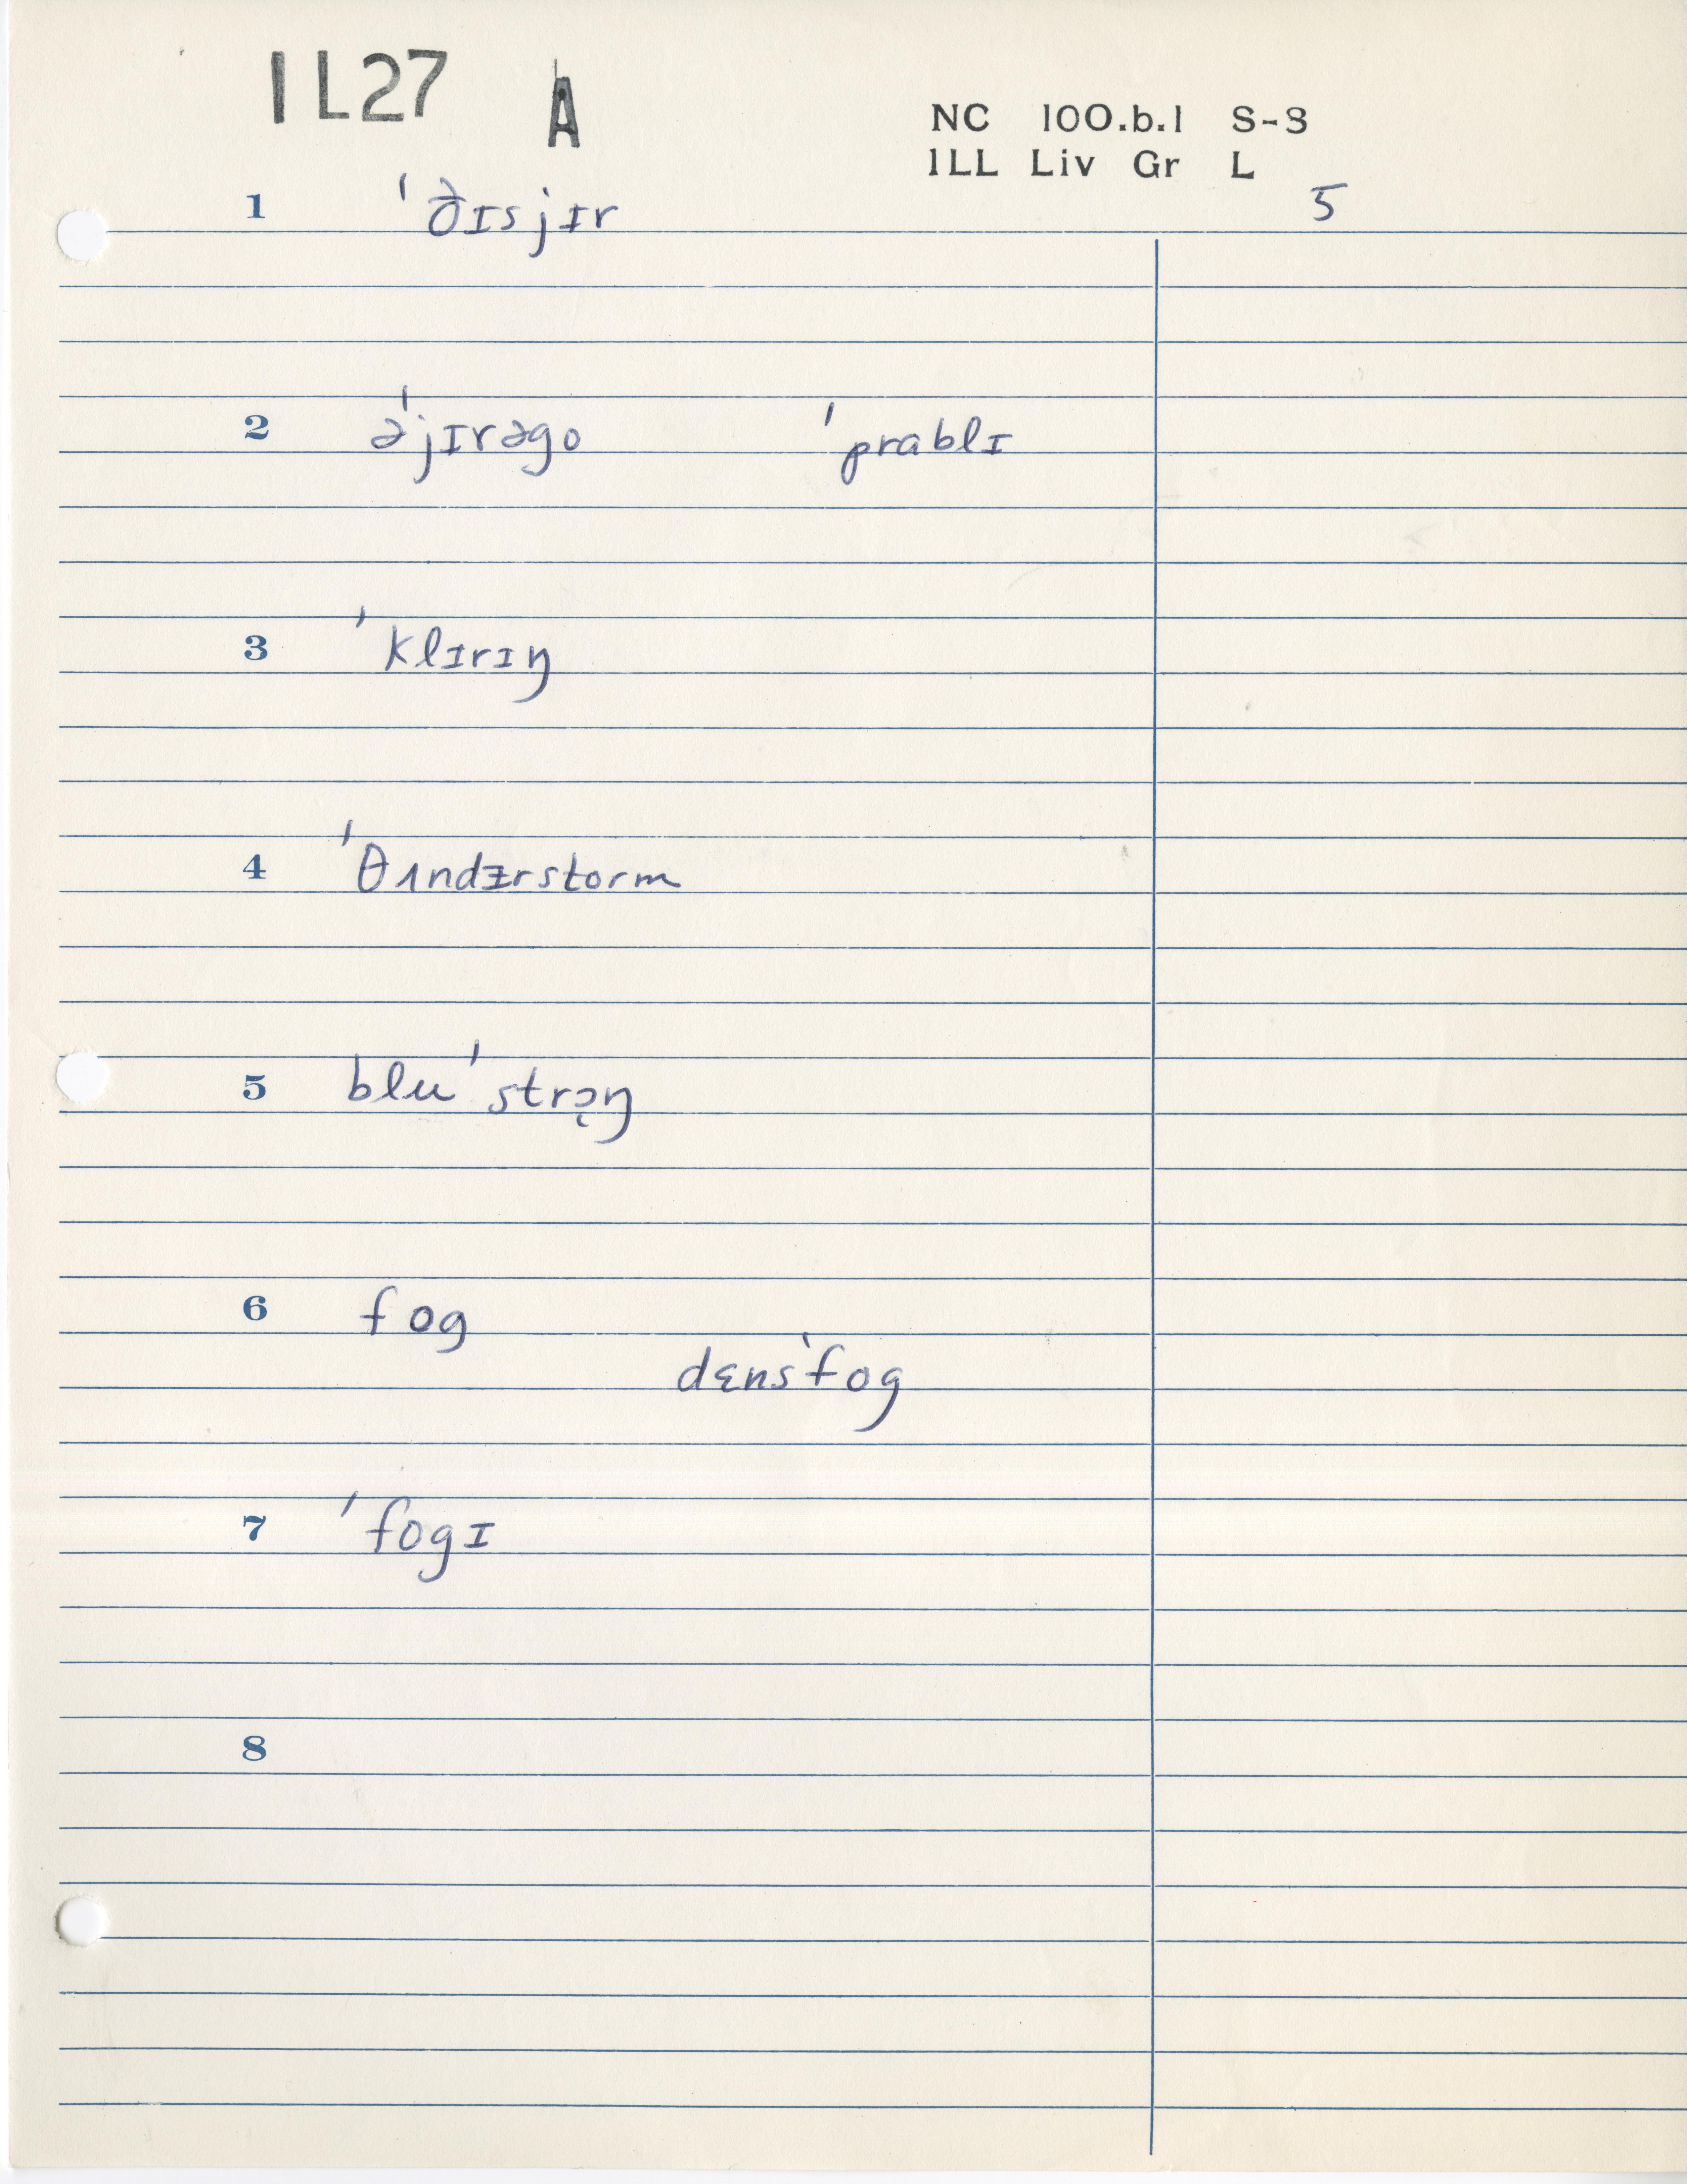 1L27 A
NC 100.b.1 S-S
ILL Liv Gr L
5
1 ˈðɪsjɪr
2 əˈjɪrəgo ˈprablɪ
3 ˈklɪrɪŋ
4 ˈθʌndᵻrstorm
5 bluˈstrɔ̨ŋ
6 fog
dɛnsˈfog
7 ˈfogɪ
8